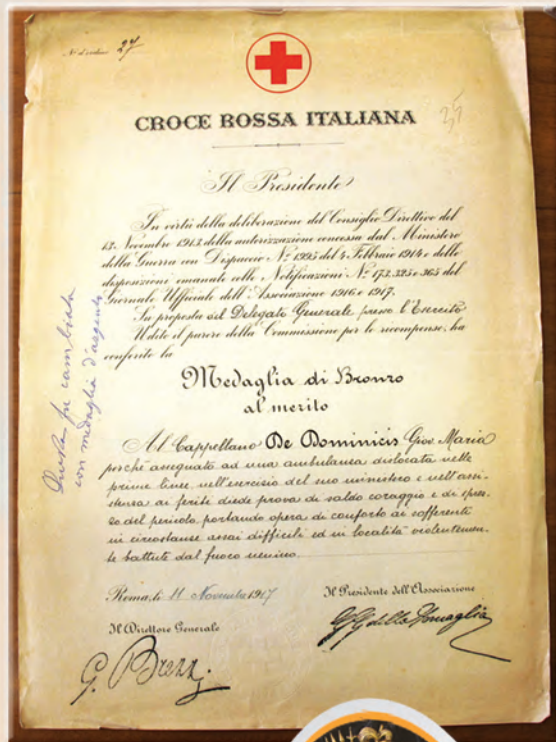 N° d'ordine 27
35
CROCE ROSSA ITALIANA
Il Presidente
In virtù della deliberazione del Consiglio Direttivo del
13. Novembre 1913. della autorizzazione concessa dal Ministero
della Guerra con Dispaccio N° 1995 del 4 Febbraio 1914 e delle
disposizioni emanate colle Notificazioni N° 173.325 e 365 del
Giornale Ufficiale dell'Associazione 1916 e 1917.
Su proposta del Delegato Generale presso l'Esercito
Udito il parere della Commissione per le ricompense, ha
conferito la
Medaglia di Bronzo
al merito
Al Cappellano De Dominicis Giov. Maria
perchè assegnato ad una ambulanza dislocata nelle
prime linee, nell'esercizio del suo ministero e nell'assi-
stenza ai feriti diede prova di saldo coraggio e di sprez-
zo del pericolo, portando opera di conforto ai sofferenti
in circostanze assai difficili ed in località violentemen-
te battute dal fuoco nemico.
Roma, li 11 Novembre 1917
Il Presidente dell'Associazione
Il Direttore Generale
G G della Somaglia
G.
Questa fu cambiata
con medaglia d'argento